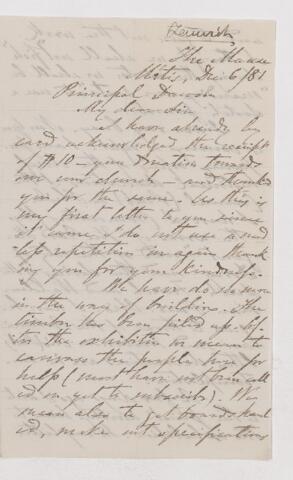 Fenwick
The Manse
Metis, Dec 6/81
Principal Dawson
My dear Sir
I have already by
card acknowledged the receipt
of $10 - your donation towards
our new church - and thanked
you for the same. As this is
my first letter to you since
it came I do not use a need
less repetition in again thank
ing you for your kindness.
We have do no more
in the way of building. The
timber has been piled up. Be
in the we mean to
canvass the people here for
help (most have not been call
ed on yet to subscribe). We
mean also to get boards haul
ed, make out specifications